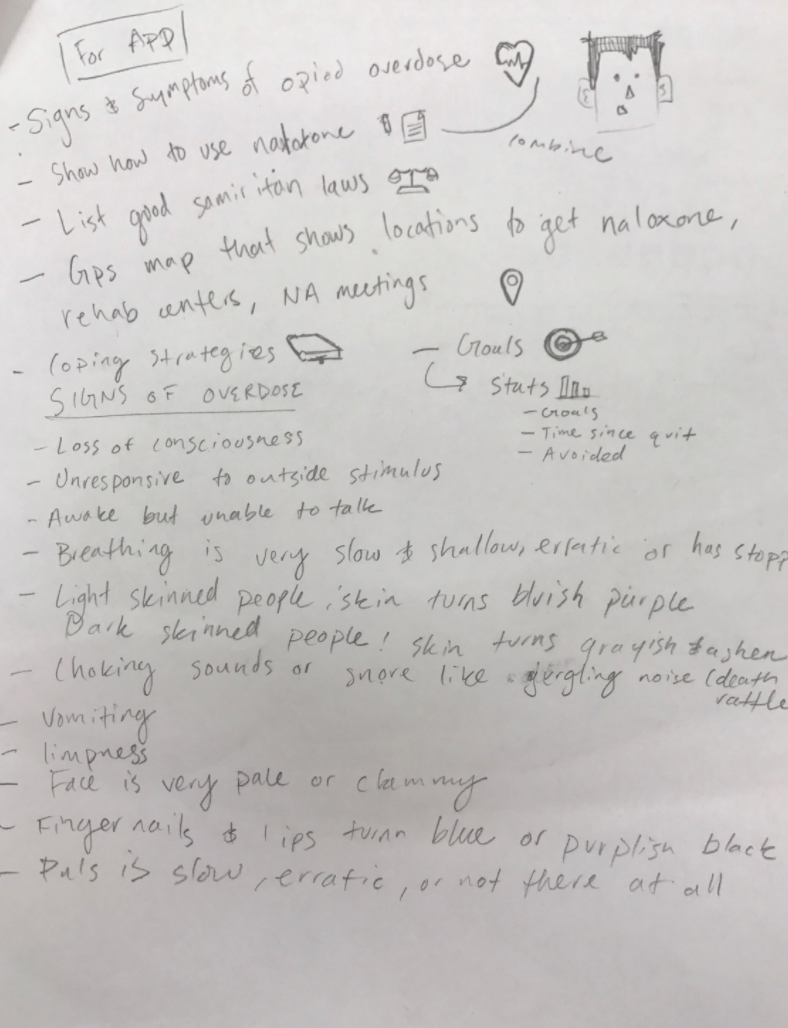 For APP
- Signs & Symptoms of opiod overdose
- Show how to use naloxone
combine
- List good samiritan laws
- Gps map that shows locations to get naloxone,
rehab centers, NA meetings
- Coping strategies
- Goals
Stats
- Goals
- Time since quit
- Avoided
SIGNS OF OVERDOSE
- Loss of consciousness
- Unresponsive to outside stimulus
- Awake but unable to talk
- Breathing is very slow & shallow, erratic or has stopp
- Light skinned people, skin turns bluish purple
Dark skinned people! skin turns grayish & ashen
- Choking sounds or snore like gergling noise (death
rattle
- Vomiting
- limpness
- Face is very pale or clammy
- Finger nails & lips turnn blue or purplish black
- Puls is slow, erratic, or not there at all